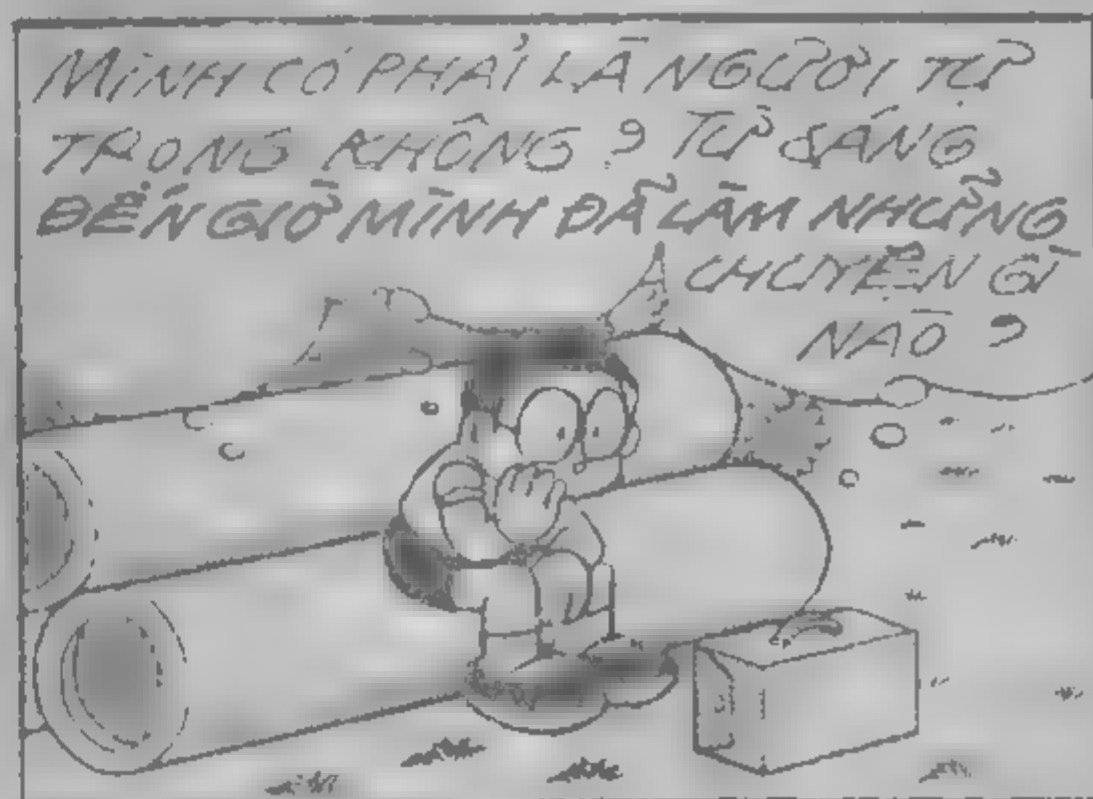 MÌNH CÓ PHẢI LÀ NGƯỜI TỰ
TRỌNG KHÔNG? TỪ SÁNG
ĐẾN GIỜ MÌNH ĐÃ LÀM NHỮNG
CHUYỆN GÌ
NÀO?